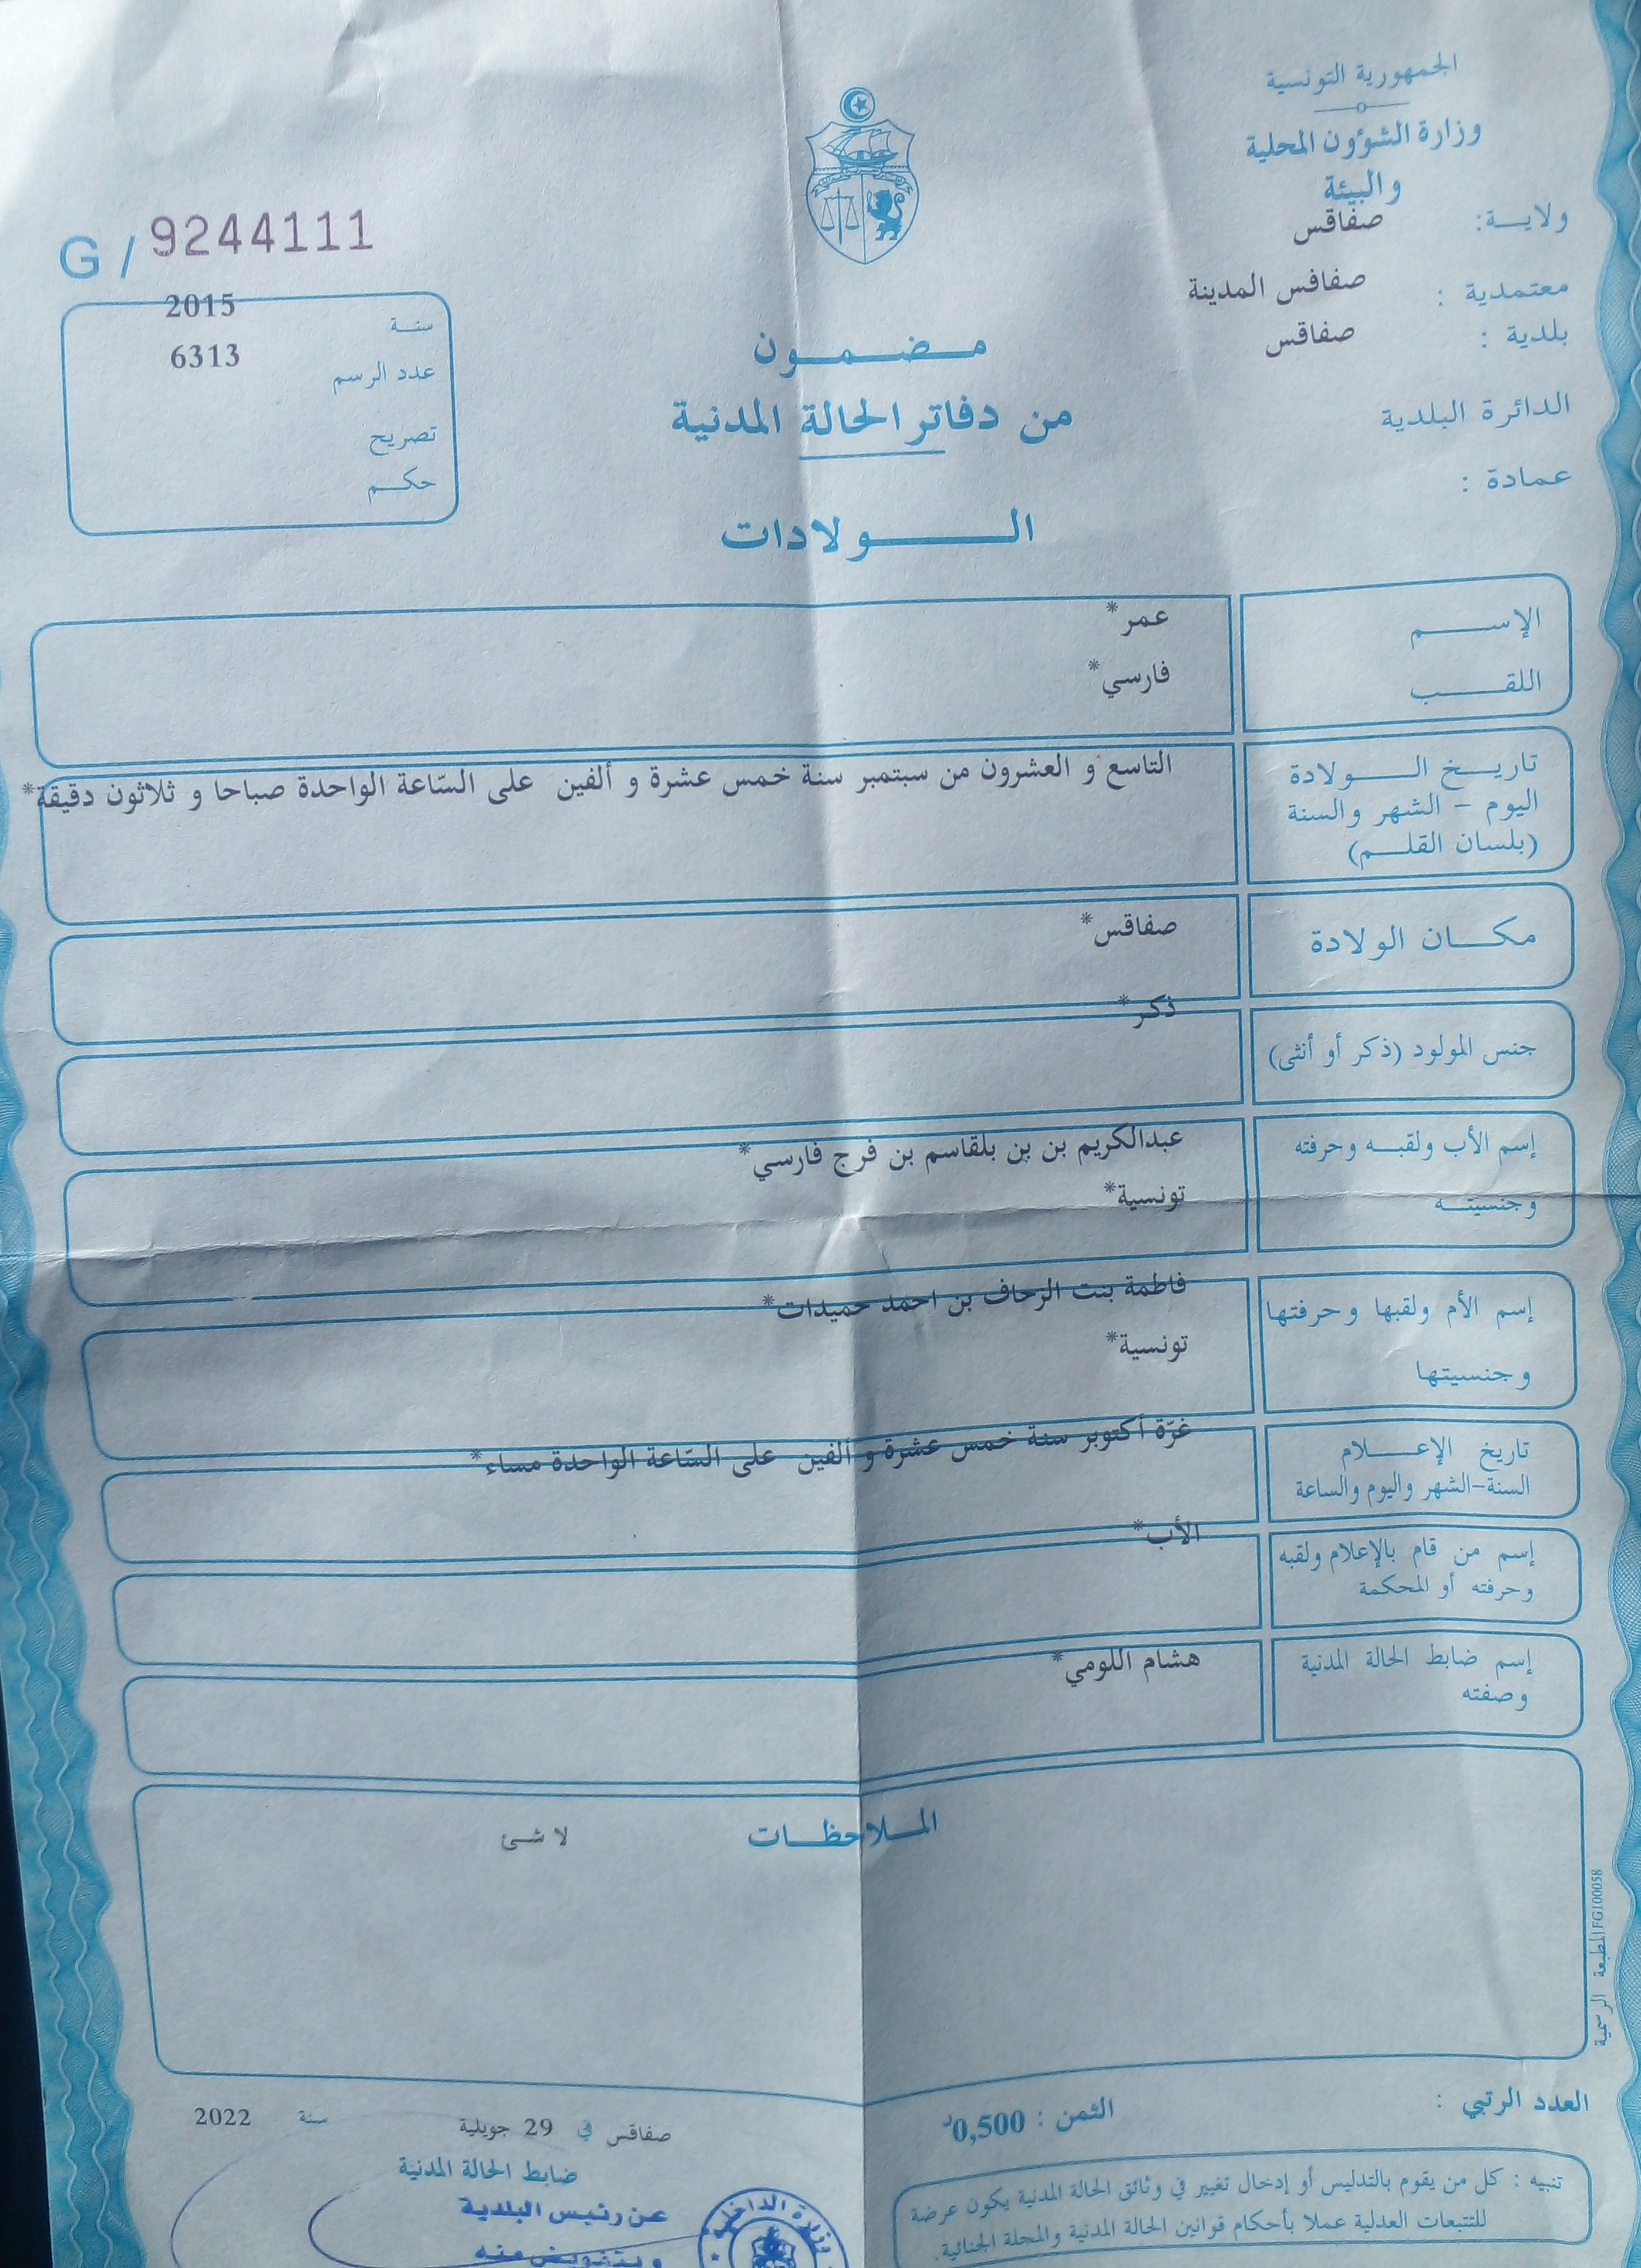 الجمهورية التونسية
وزارة الشؤون المحلية
والبيئة
ولايـة: صفاقس
معتمدية : صفاقس المدينة
بلدية : صفاقس
الدائرة البلدية
عمادة :
G / 9244111
سنة 2015
عدد الرسم 6313
تصريح
حكم
مضمون
من دفاتر الحالة المدنية
الولادات
الإسم عمر*
اللقب فارسي*
تاريخ الولادة
اليوم - الشهر والسنة
(بلسان القلم)
التاسع و العشرون من سبتمبر سنة خمس عشرة و ألفين على السّاعة الواحدة صباحا و ثلاثون دقيقة*
مكان الولادة صفاقس*
جنس المولود (ذكر أو أنثى) ذكر*
إسم الأب ولقبه وحرفته عبدالكريم بن بن بلقاسم بن فرج فارسي*
وجنسيته تونسية*
إسم الأم ولقبها وحرفتها فاطمة بنت الزحاف بن احمد حميدات*
وجنسيتها تونسية*
تاريخ الإعلام
السنة-الشهر واليوم والساعة
غرّة أكتوبر سنة خمس عشرة و ألفين على السّاعة الواحدة مساء*
إسم من قام بالإعلام ولقبه
وحرفته أو المحكمة
الأب*
إسم ضابط الحالة المدنية
وصفته
هشام اللومي*
الملاحظات لا شئ
المطبعة الرسمية FG100058
العدد الرتبي :
الثمن : 0,500د
تنبيه : كل من يقوم بالتدليس أو إدخال تغيير في وثائق الحالة المدنية يكون عرضة
للتتبعات العدلية عملا بأحكام قوانين الحالة المدنية والمجلة الجنائية.
صفاقس في 29 جويلية سنة 2022
ضابط الحالة المدنية
عن رئيس البلدية
وبتفويض منه
وزارة الداخلية